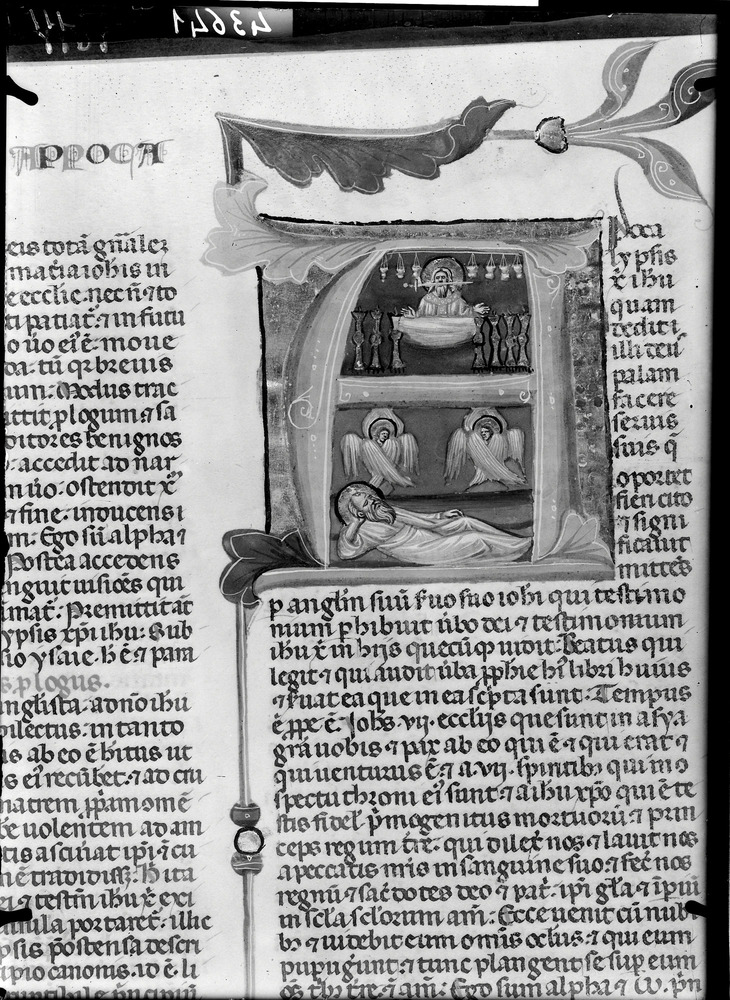 43641
APPOCA
eis totā gn̄alez
matia iohis in
e ecclīe. nec n̄ ⁊ to
ti patiat᷑: ⁊ in futu
o ūo ei᷒ ē: moue
da: tū qr breuis
num. Modus trac
attit plogum ⁊ sa
ditores benignos
accedit ad nar
n ūo: ostendit x̄
⁊ fine. inducens i
m: Ego sū alpha ⁊
Postea accedens
nguit uisiōes qui
mat᷑: Premittit at
ypsis xp̄i ihu: Sub
sio ysaie. h ē ⁊ pam
s. plogus.
anglista. ad nō ihu
dilectus. in tanto
is ab eo ē hitus ut
s ei᷒ recūbet᷑. ⁊ ad cru
matrem ip̄am om̄ē
be uolentem ad am
ntis asciuat ip̄i ⁊ cū
nē tradidiss3. h ita
ei ⁊ testm̄ ihu x̄ exi
nnula portaret᷑. illic
psis p᷒ ostensa descri
ipio canonis. id ē. li
Poca
lypsis
x̄ ihu
quam
dedit i
illi deus
palam
facere
seruis
suis q̄
oportet
fieri cito
⁊ signi
ficauit
mittēs
p anglm̄ suū s̄uo suo iohi qui testimo
nium phibuit ūbo dei ⁊ testimonium
ihu x̄ in hijs quecūq3 uidit. Beatus qui
legit ⁊ qui audit ūba pphie hi᷒ libri huius
⁊ s̄uat ea que in ea scpta sunt: Tempus
ē ppe ē. Johs. vij. ecclijs que sunt in asya
gr̄a uobis ⁊ pax ab eo qui ē ⁊ qui erat ⁊
qui uenturus ē ⁊ a. vij. spiritib3 qui in 9
spectu throni ei᷒ sunt ⁊ a ihu xp̄o qui ē te
stis fidel᷑ pmogenitus mortuorū ⁊ prin
ceps regum tr̄e: qui dilex̄ nos ⁊ lauit nos
a peccatis nr̄is in sanguine suo ⁊ fec̄ nos
regnū ⁊ sac᷑dotes deo ⁊ pat᷑. ip̄i gl̄a ⁊ ip̄iū
in scl̄a scl̄orum am̄: Ecce uenit cū nubi
b3 ⁊ uidebit eum om̄is ocl̄us ⁊ qui eum
pupugunt ⁊ tunc plangent se sup eum
om̄s trib3 tr̄e ⁊ am̄: Ego sum alpha ⁊ ω. p̄n